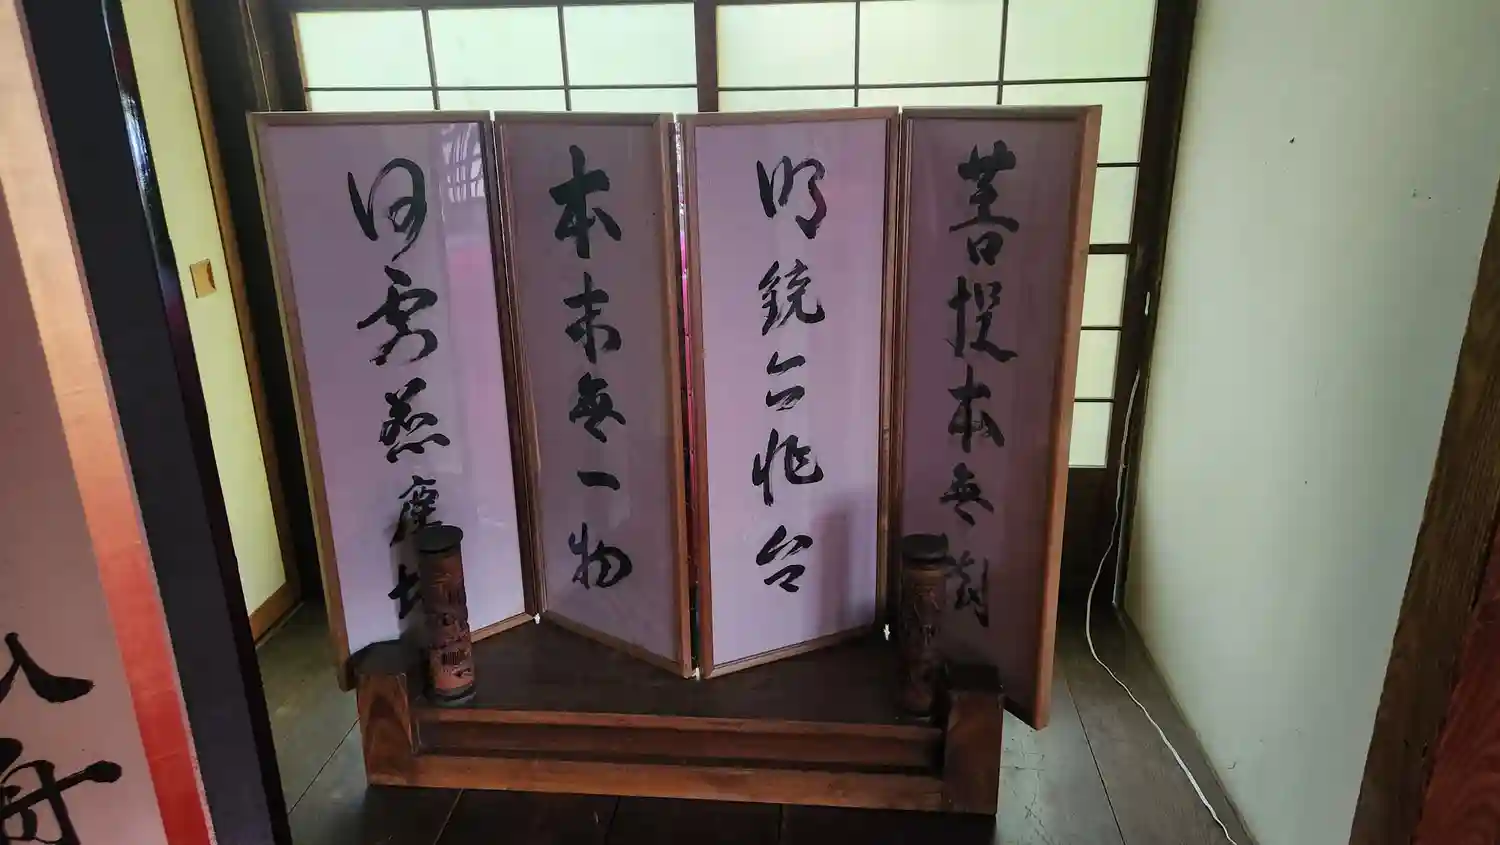 菩提本無樹
明鏡亦非台
本来無一物
何処惹塵埃